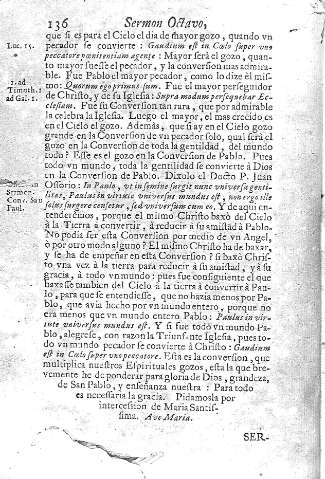 136 Sermon Octavo,
que si es para el Cielo el dia de mayor gozo, quando vn
Luc. 15. pecador se convierte : Gaudium est in Cœlo super vno
peccatore pœnitentiam agente : Mayor será el gozo, quan-
to mayor fuesse el pecador, y la conversion mas admira-
ble. Fue Pablo el mayor pecador, como lo dize él mis-
1. ad Timoth. 1. mo: Quorum ego primus sum. Fue el mayor perseguidor
ad Gal. 1. de Christo, y de su Iglesia : Supra modum persequebar Ec-
clesiam. Fue su Conversion tan rara, que por admirable
la celebra la Iglesia. Luego el mayor, el mas crecido es
en el Cielo el gozo. Además, que si ay en el Cielo gozo
grande en la Conversion de vn pecador solo, qual será el
gozo en la Conversion de toda la gentilidad, del mundo
todo? Esse es el gozo en la Conversion de Pablo. Pues
todo vn mundo, toda la gentilidad se convierte á Dios
en la Conversion de Pablo. Dixolo el Docto P. Juan
Ossorio : In Paulo, vt in semine surgit nunc vniversa genti-
Sermon. litas, Paulus in virtute vniversus mundus est, non ergo ille
Conv. San solus surgere censetur, sed vniversum cum eo. Y de aqui en-
Paul. tenderémos, porque el mismo Christo baxò del Cielo
à la Tierra à convertir, à reducir à su amistad à Pablo.
No podia ser esta Conversion por medio de vn Angel,
ò por otro modo alguno? El mismo Christo ha de baxar,
y se ha de empeñar en esta Conversion? Si baxò Chris-
to vna vez à la tierra para reducir à su amistad, y à su
gracia, à todo vn mundo : pues fue consiguiente el que
baxasse tambien del Cielo à la tierra à convertir à Pa-
blo, para que se entendiesse, que no hazia menos por Pa-
blo, que avia hecho por vn mundo entero, porque no
era menos que vn mundo entero Pablo : Paulus in vir-
tute vniversus mundus est. Y si fue todo vn mundo Pa-
blo, alegrese, con razon la Triunfante Iglesia, pues to-
do vn mundo pecador se convierte à Christo : Gaudium
est in Cœlo super vno peccatore. Esta es la conversion, que
multiplica nuestros Espirituales gozos, esta la que bre-
vemente he de ponderar para gloria de Dios, grandeza,
de San Pablo, y enseñanza nuestra : Para todo
es necessaria la gracia. Pidamosla por
intercession de Maria Santis-
sima. Ave Maria.
SER-